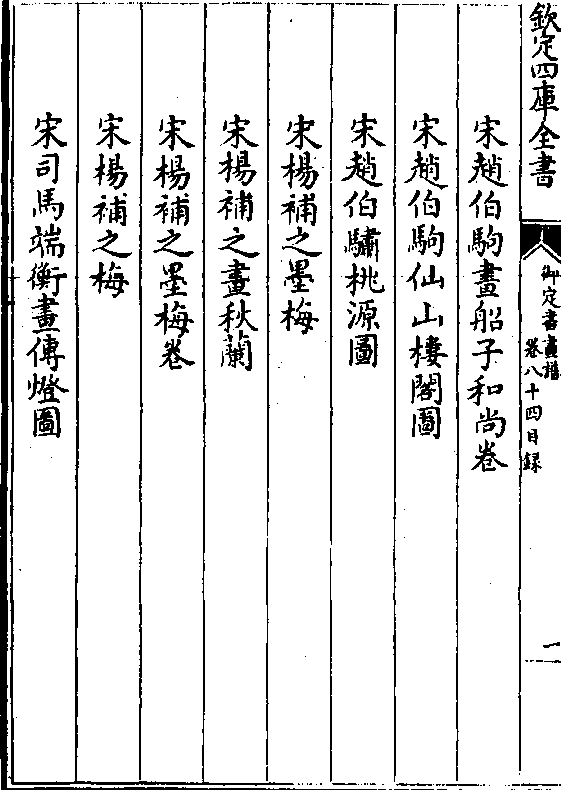 欽定四庫全書
御定書畫譜
卷八十四目録
一
宋趙伯駒畫船子和尚卷
宋趙伯駒仙山樓閣圖
宋趙伯驌桃源圖
宋楊補之墨梅
宋楊補之畫秋蘭
宋楊補之墨梅卷
宋楊補之梅
宋司馬端衡畫傳燈圖